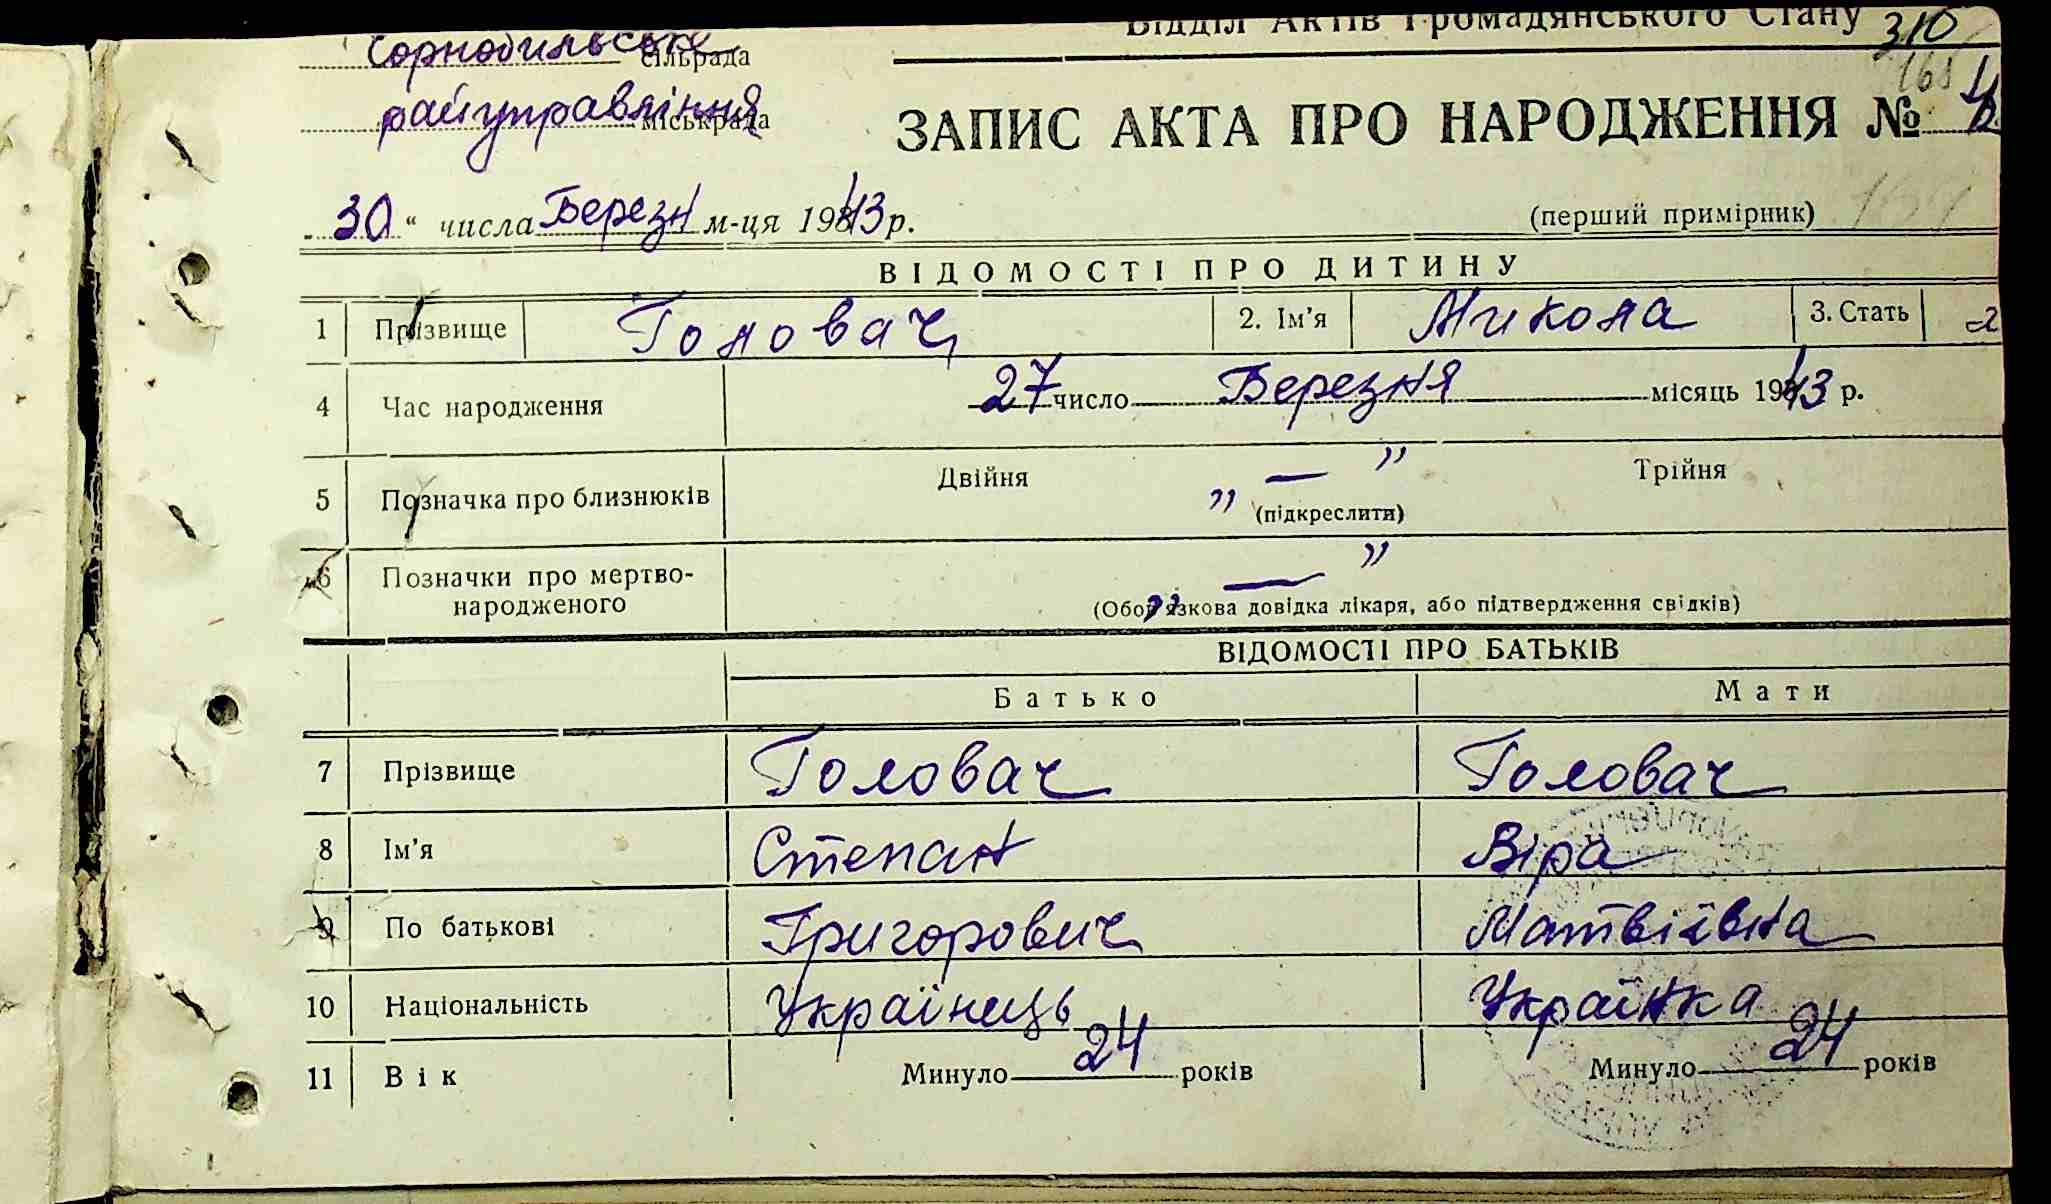 Відділ Актів Громадянського Стану 310
сільрада
райуправління міськрада
ЗАПИС АКТА ПРО НАРОДЖЕННЯ №
30 “ числа Березня м-ця 1943 р.
(перший примірник)
ВІДОМОСТІ ПРО ДИТИНУ
1 Прізвище Головач 2. Ім’я Микола 3. Стать
4 Час народження 27 число Березня місяць 1943 р.
5 Позначка про близнюків Двійня „ — ” Трійня
(підкреслити)
6 Позначки про мертво-
народженого „ — ”
(Обов’язкова довідка лікаря, або підтвердження свідків)
ВІДОМОСТІ ПРО БАТЬКІВ
Батько Мати
7 Прізвище Головач Головач
8 Ім’я Степан Віра
9 По батькові Григорович Матвіївна
10 Національність Українець Українка
11 Вік Минуло 24 років Минуло 24 років